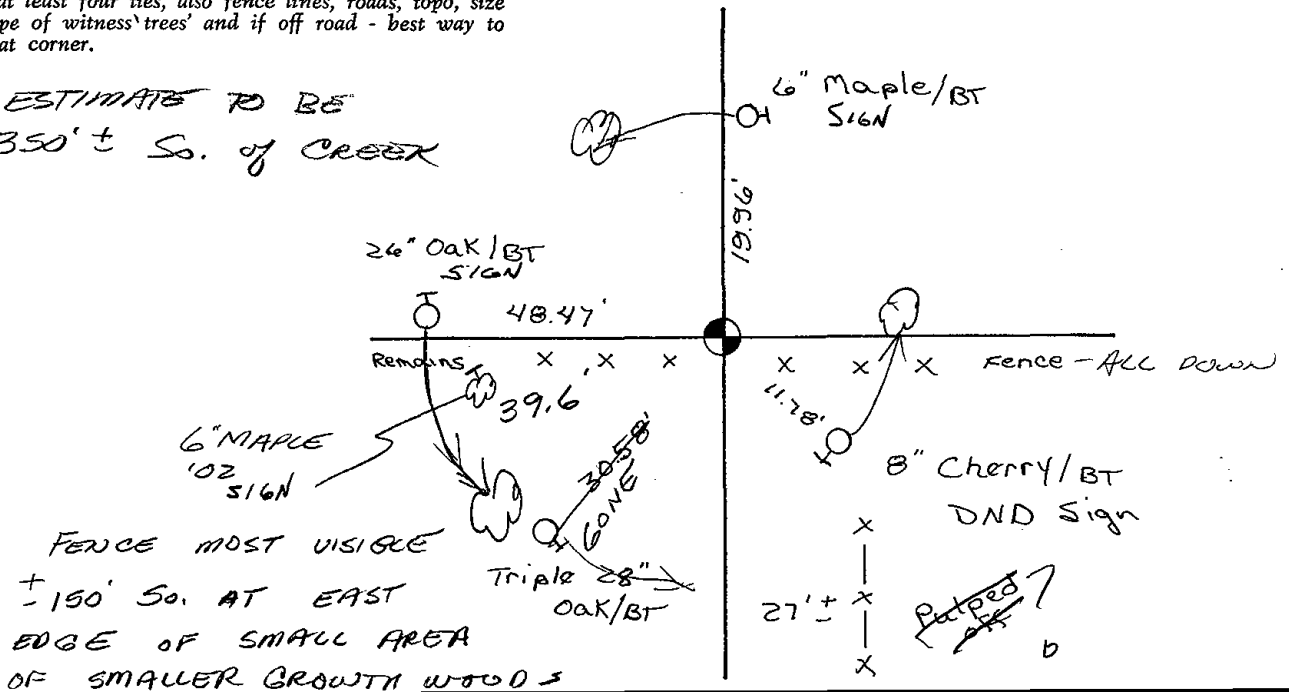 at least four ties, also fence lines, roads, topo, size
pe of witness trees' and if off road - best way to
at corner.
ESTIMATE TO BE
350' ± So. of CREEK
6" Maple/BT
SIGN
19.96'
26" Oak/BT
SIGN
48.47'
Remains x x x x x x Fence - ALL DOWN
39.6'
11.78'
6" MAPLE
'02
SIGN
30.58'
GONE
8" Cherry/BT
DND Sign
FENCE MOST VISIBLE
± 150' So. AT EAST
EDGE OF SMALL AREA
OF SMALLER GROWTH WOODS
Triple 28"
Oak/BT
x
27' ± x
x
Pulped
off
?